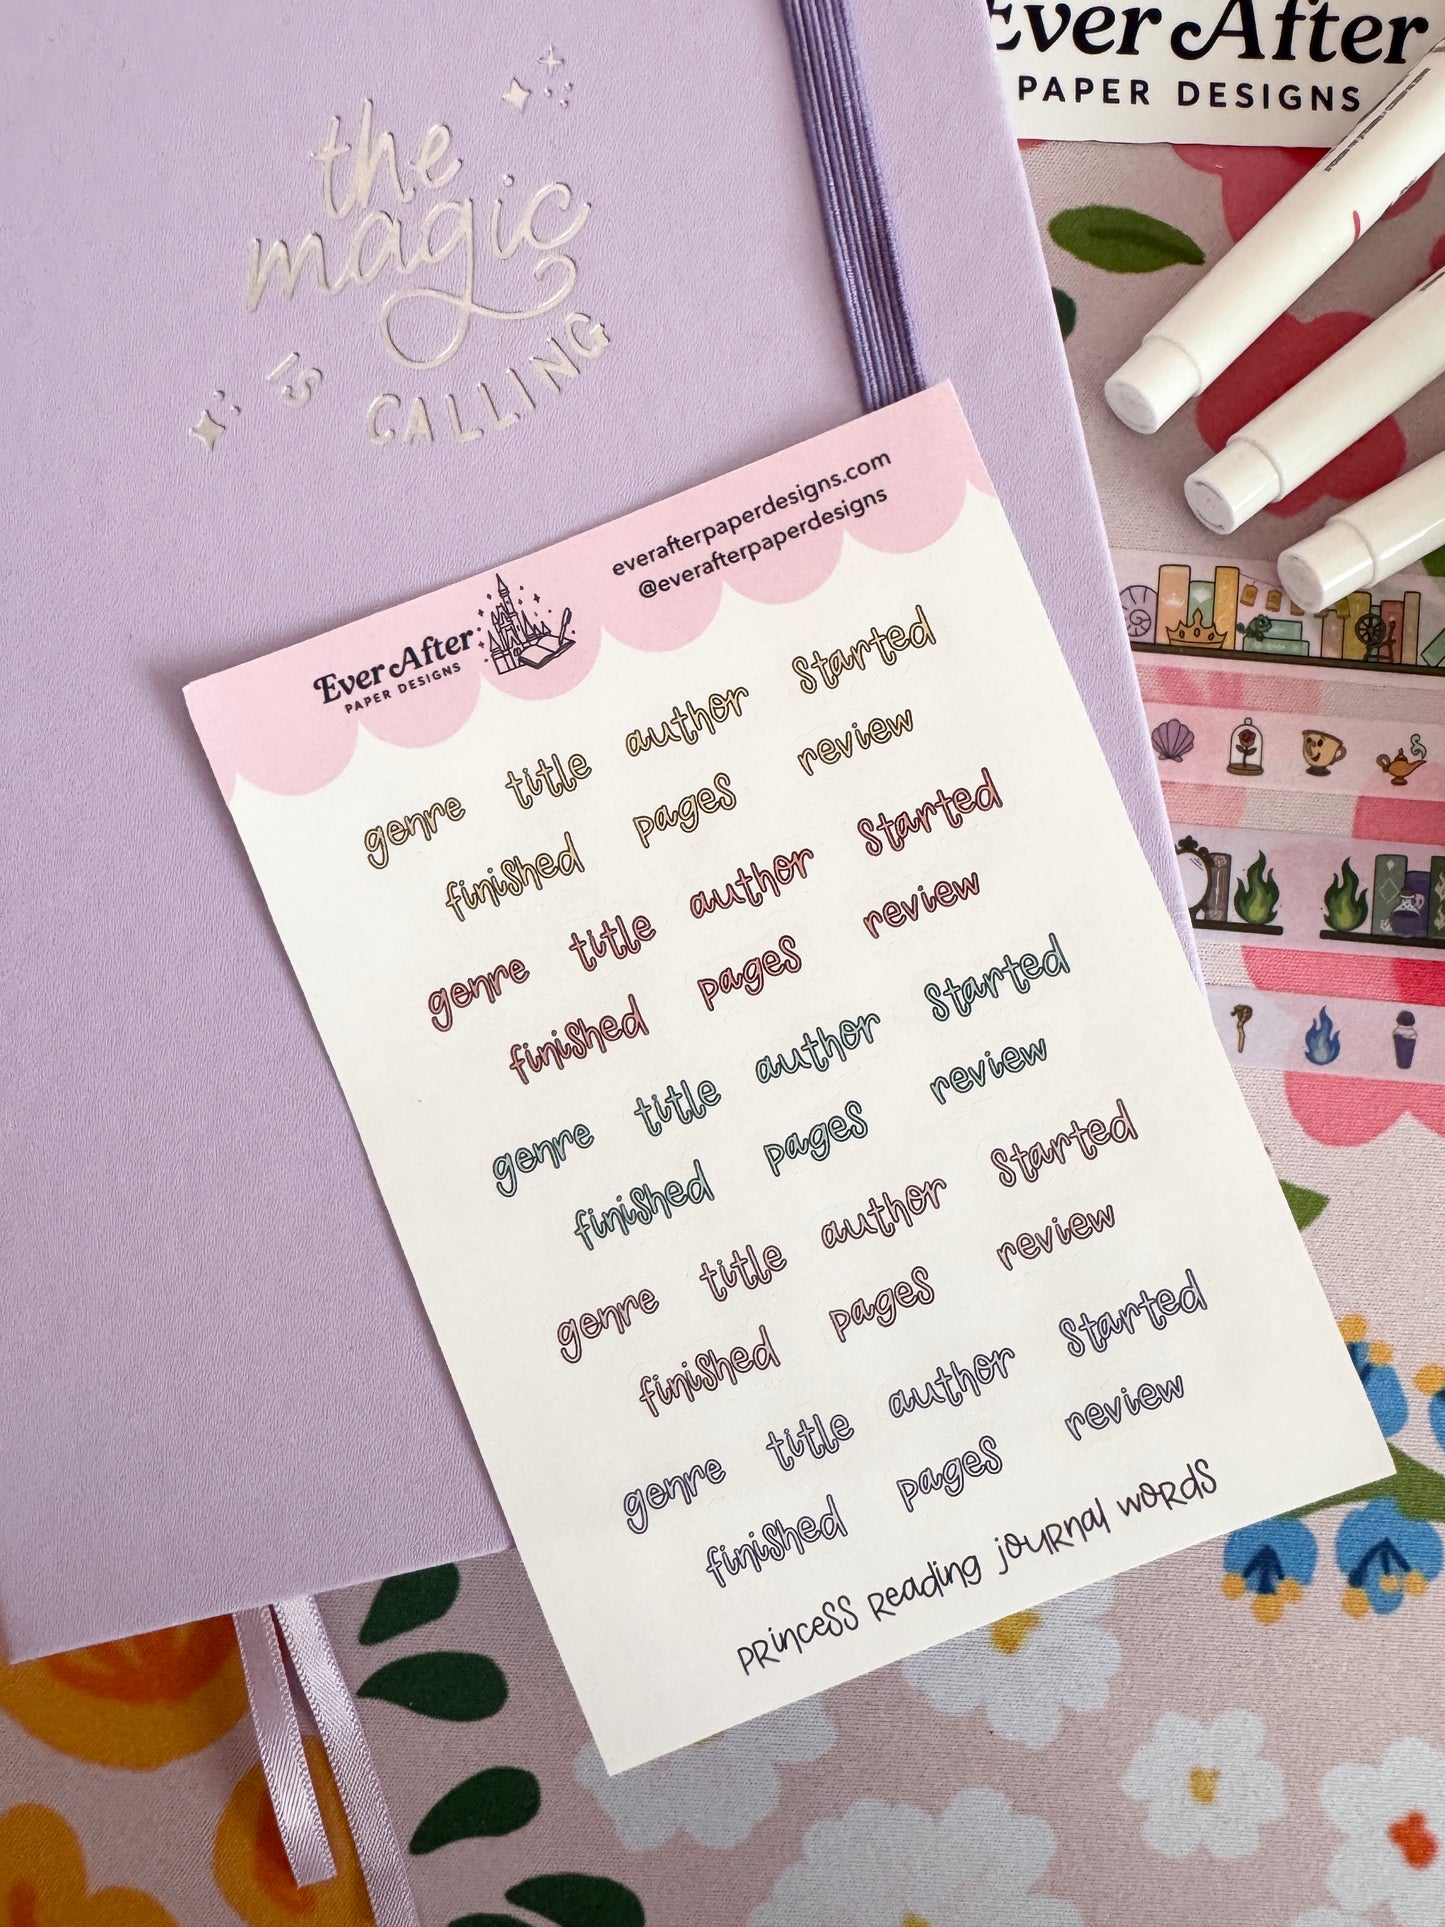 the
magic
is
CALLING
Ever After
PAPER DESIGNS
everafterpaperdesigns.com
@everafterpaperdesigns
Ever After
PAPER DESIGNS
genre title author Started
finished pages review
genre title author Started
finished pages review
genre title author Started
finished pages review
genre title author Started
finished pages review
genre title author Started
finished pages review
PRincess Reading jouRnal woRds